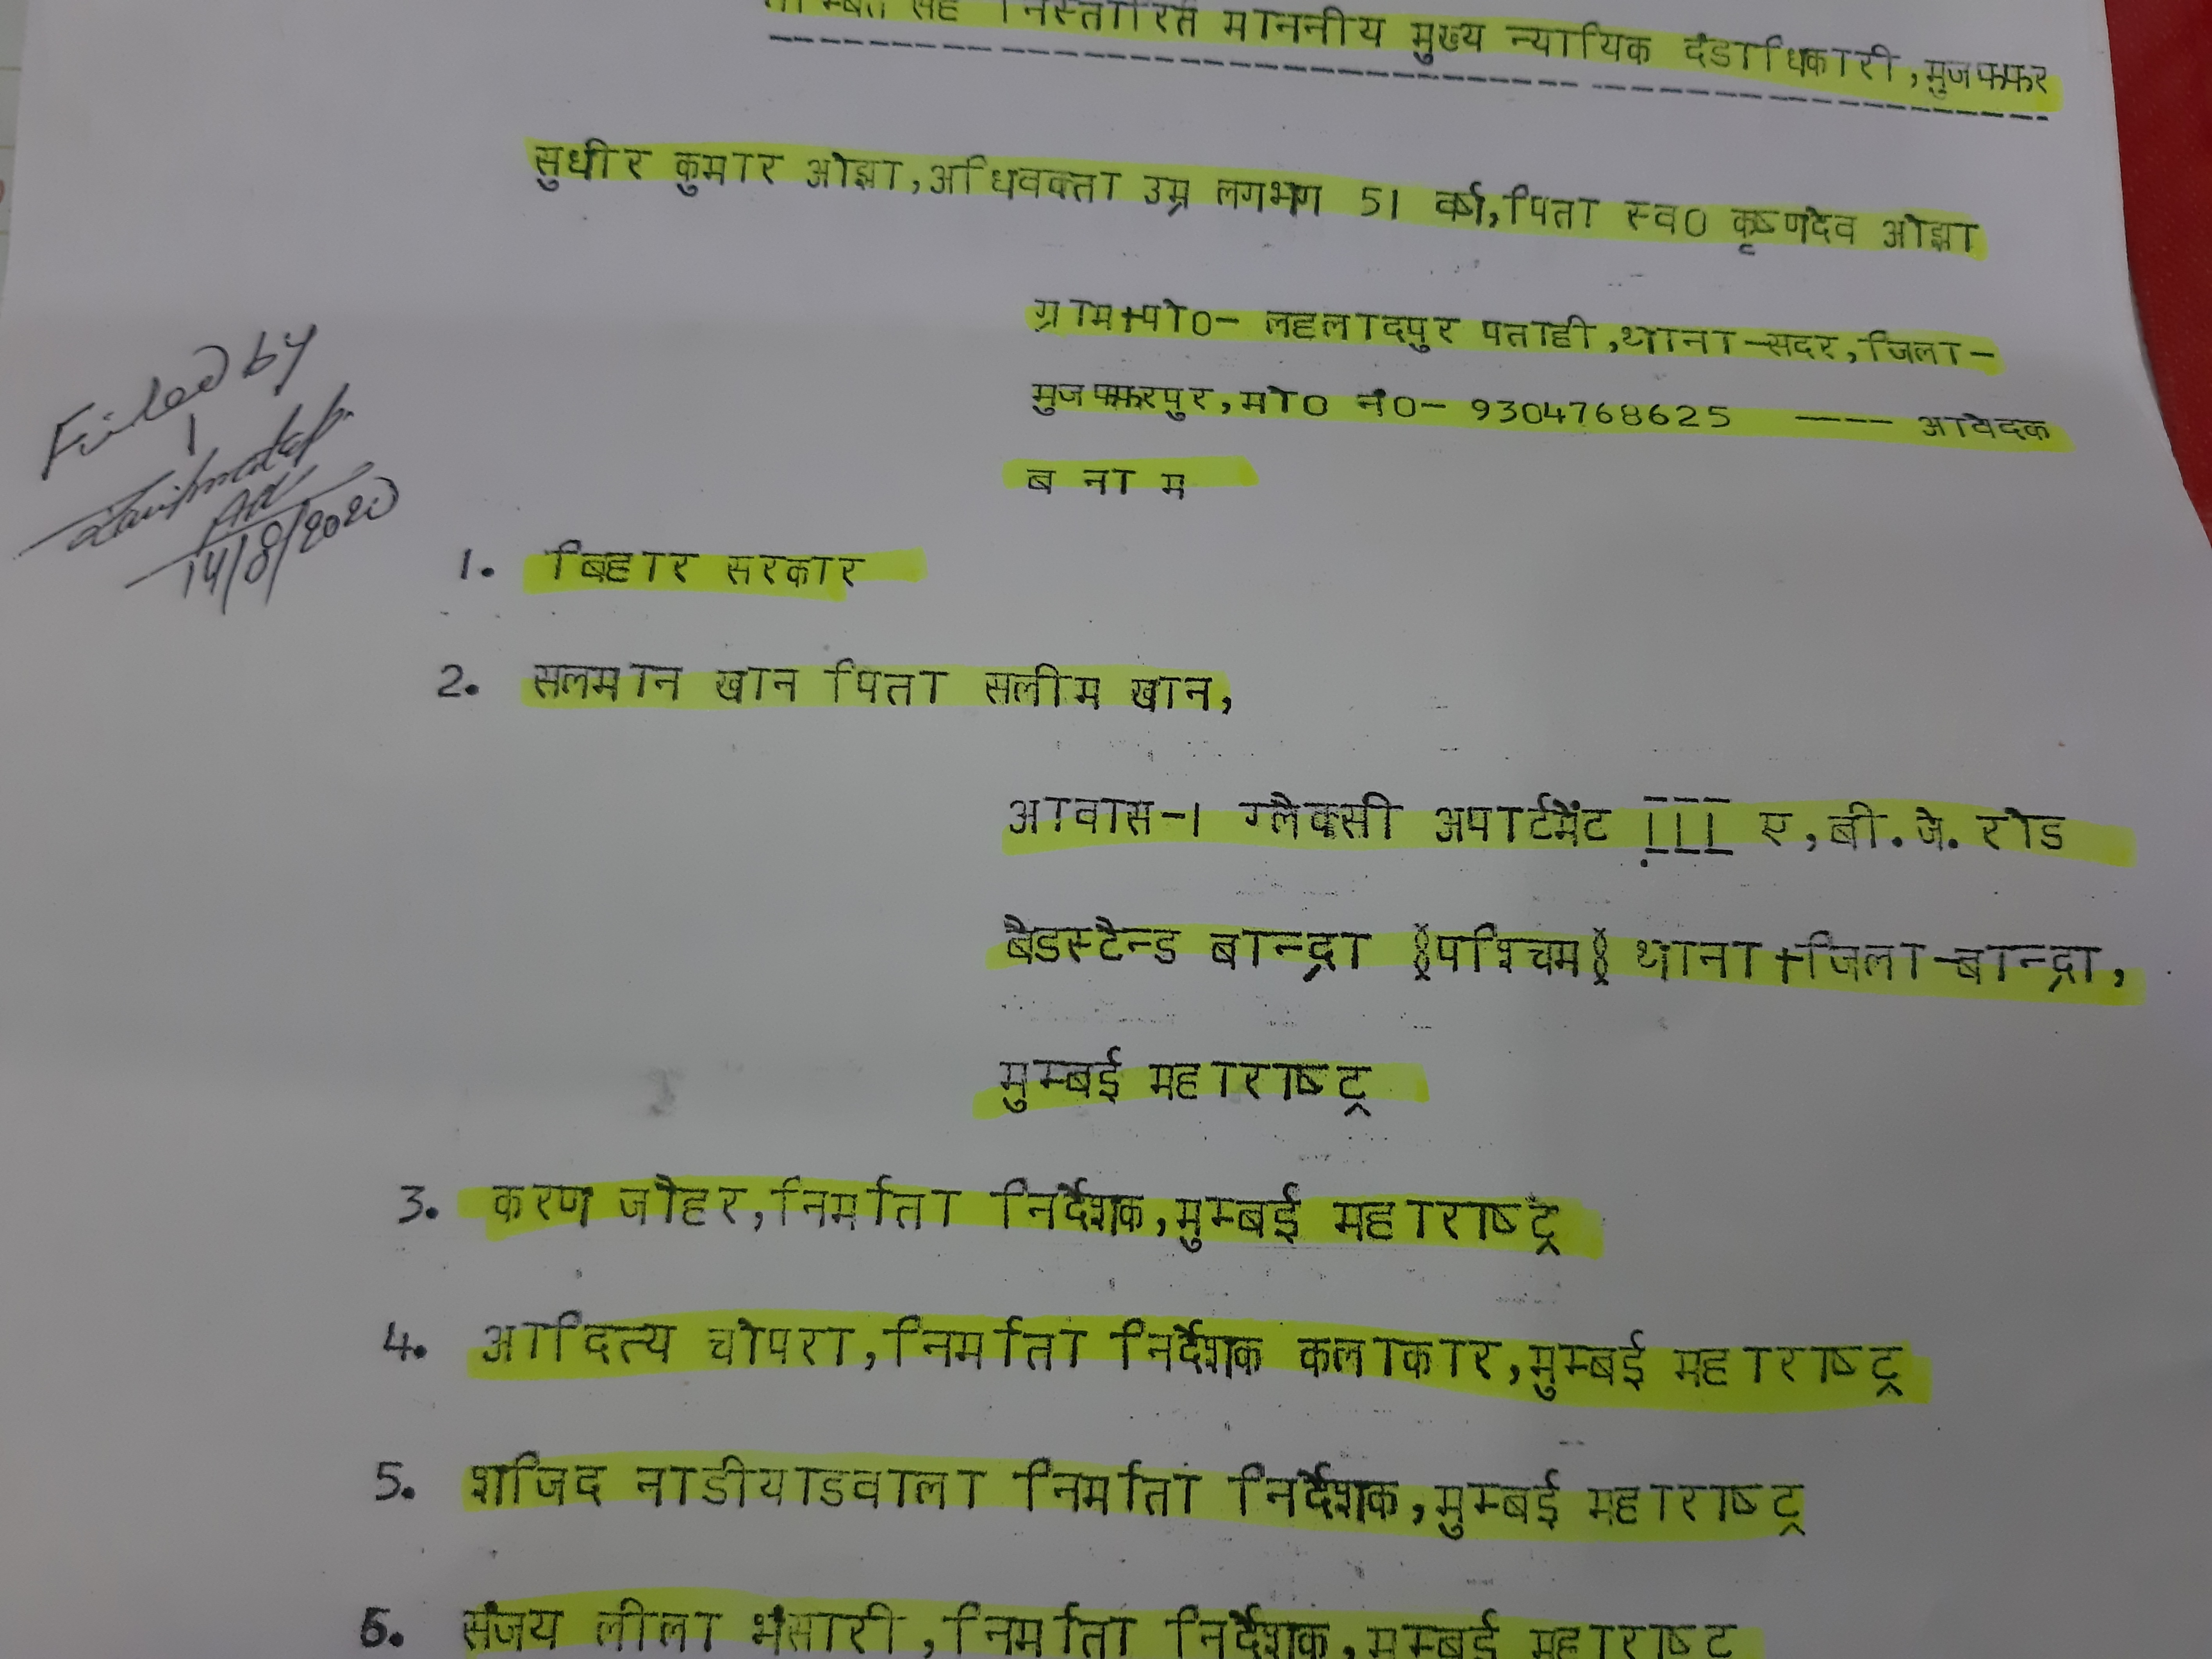 सह निस्तारित माननीय मुख्य न्यायिक दंडाधिकारी,मुजफ्फर
सुधीर कुमार ओझा,अधिवक्ता उम्र लगभग 51 वर्ष,पिता स्व0 कृष्णदेव ओझा
ग्राम+पो0- लहलादपुर पताही,थाना-सदर,जिला-
मुजफ्फरपुर,मो0 नं0- 9304768625 ---- आवेदक
ब ना म
Filed by
14/8/2020
1. बिहार सरकार
2. सलमान खान पिता सलीम खान,
आवास-1 ग्लैक्सी अपार्टमेंट III ए,बी.जे. रोड
बैडस्टैन्ड बान्द्रा (पश्चिम) थाना+जिला-बान्द्रा,
मुम्बई महाराष्ट्र
3. करण जोहर,निर्माता निर्देशक,मुम्बई महाराष्ट्र
4. आदित्य चोपरा,निर्माता निर्देशक कलाकार,मुम्बई महाराष्ट्र
5. शजिद नाडीयाडवाला निर्माता निर्देशक,मुम्बई महाराष्ट्र
6. संजय लीला भंसारी,निर्माता निर्देशक,मुम्बई महाराष्ट्र